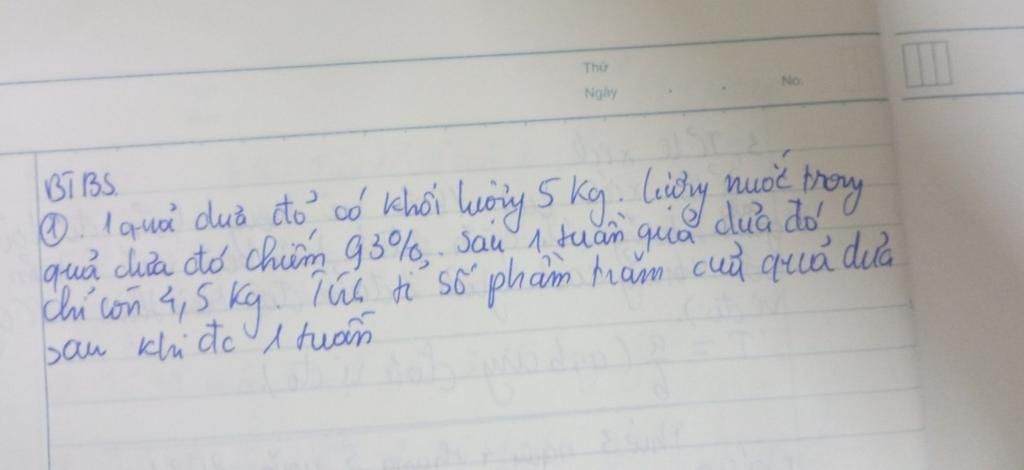 Thứ
Ngày . . No.
BTBS.
①. 1 quả dưa đỏ có khối lượng 5 kg. Lượng nước trong
quả dưa đó chiếm 93%. sau 1 tuần quả dưa đó
chỉ còn 4,5 kg. tỉ số phần trăm của quả dưa
sau khi đc 1 tuần